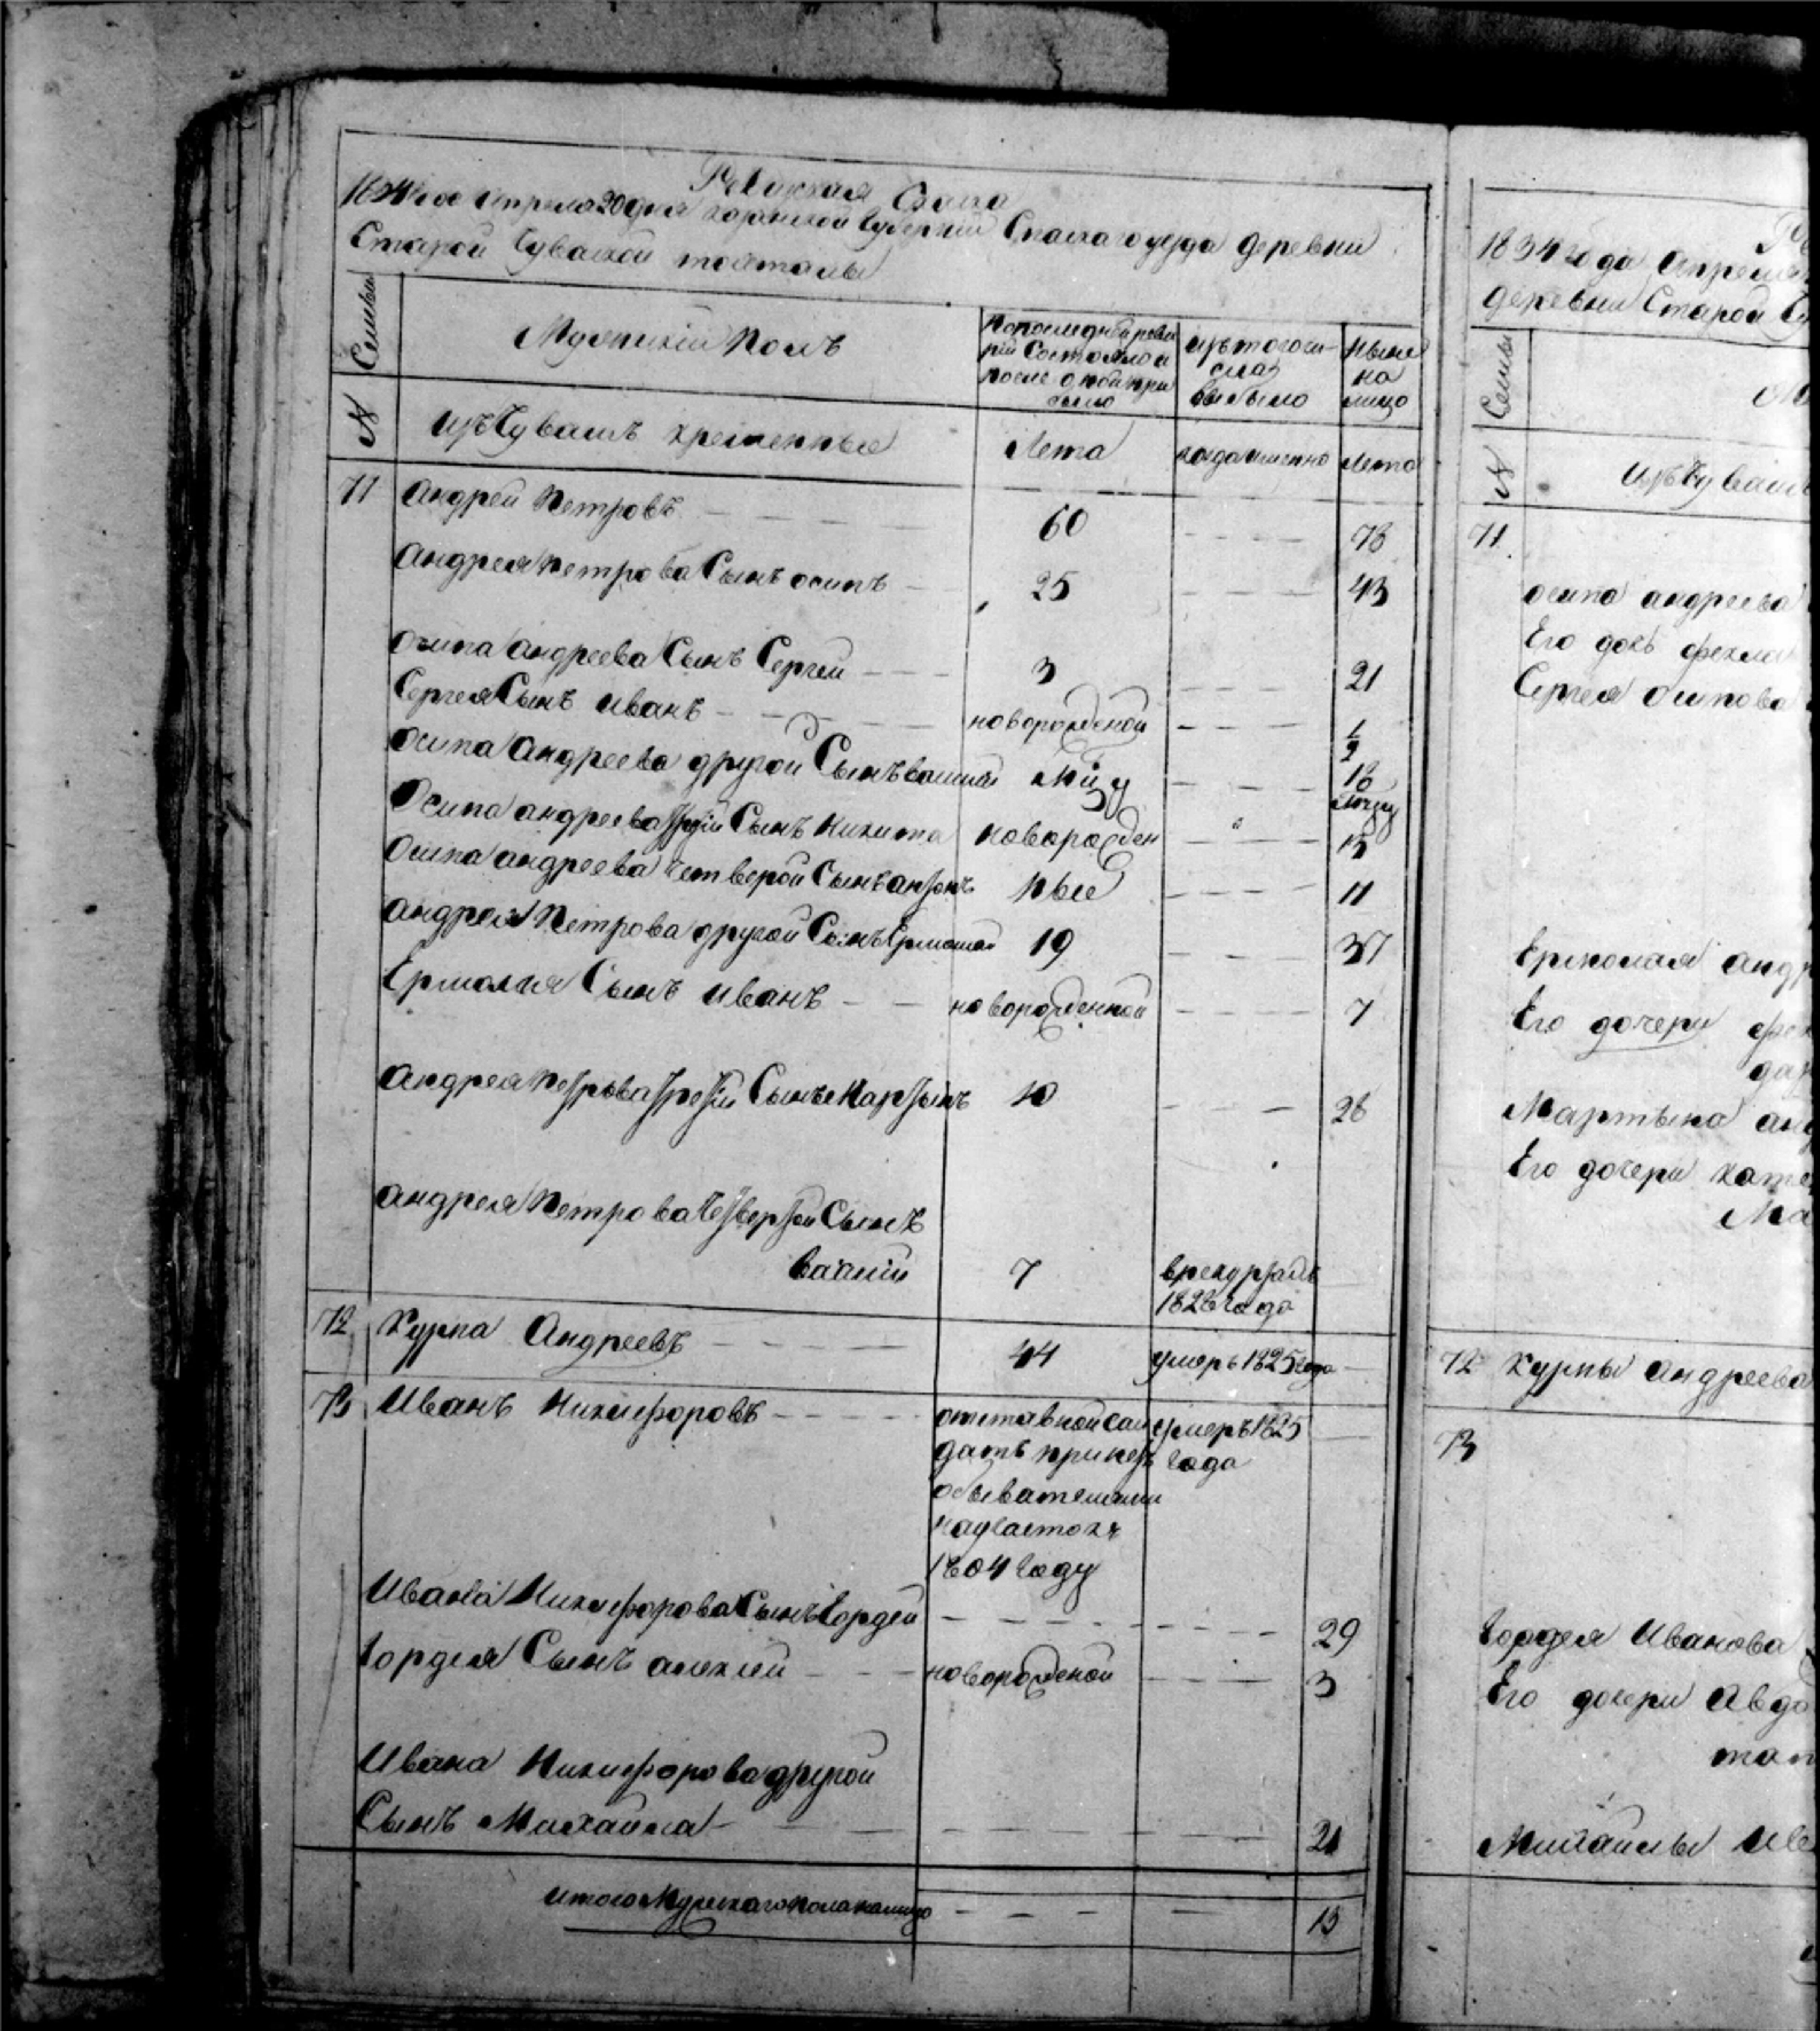 Ревизская Сказка
1834 года апреля 20 дня казанской Губернии Спаскаго уезда деревни
Старой Чувской
Семьи
Мужеский Полъ
По последней реви
зии Состояло и
после оной при
было
Изъ того чи
сла
выбыло
Ныне
на
лицо
№
изъ Чувашъ крещенные
Лета
когда имянно
Лета
71 андрей Петровъ 60 78
андрея Петрова Сынъ осипъ 25 43
осипа андреева Сынъ Сергей 3 21
Сергея Сынъ иванъ новорожденой 1/2
осипа андреева другой Сынъ 18
Осипа андреева третий Сынъ Никита новорожден 13
Осипа андреева четверой Сынъ антонъ ные 11
андрея Петрова другой Сынъ Ермолай 19 37
Ермолая Сынъ иванъ новорожденной 7
андрея Петрова третий Сынъ Мартынъ 10 28
андрея Петрова Четвертой Сынъ
7 в рекрутахъ
года
72 Курпа Андреевъ 44 умеръ 1825 года
73 Иванъ Никифоровъ отставной сол умеръ 1825
датъ года
обывателями
1804 году
Ивана Никифорова Сынъ Гордей 29
Гордея Сынъ алексей новорожденой 3
Ивана Никифорова другой
Сынъ Михаила 21
итого Мужескаго пола налицо 13
1834 года Апреля
деревни Старой
Семьи
№
изъ Чуваш
71.
осипа андреева
Его дочь
Сергея осипова
Ермолая анд
Его дочери
Мартына анд
Его дочери кате
Ма
72 Курпы андреева
73
Гордея Иванова
Его дочери Авдо
Михайлы Ив